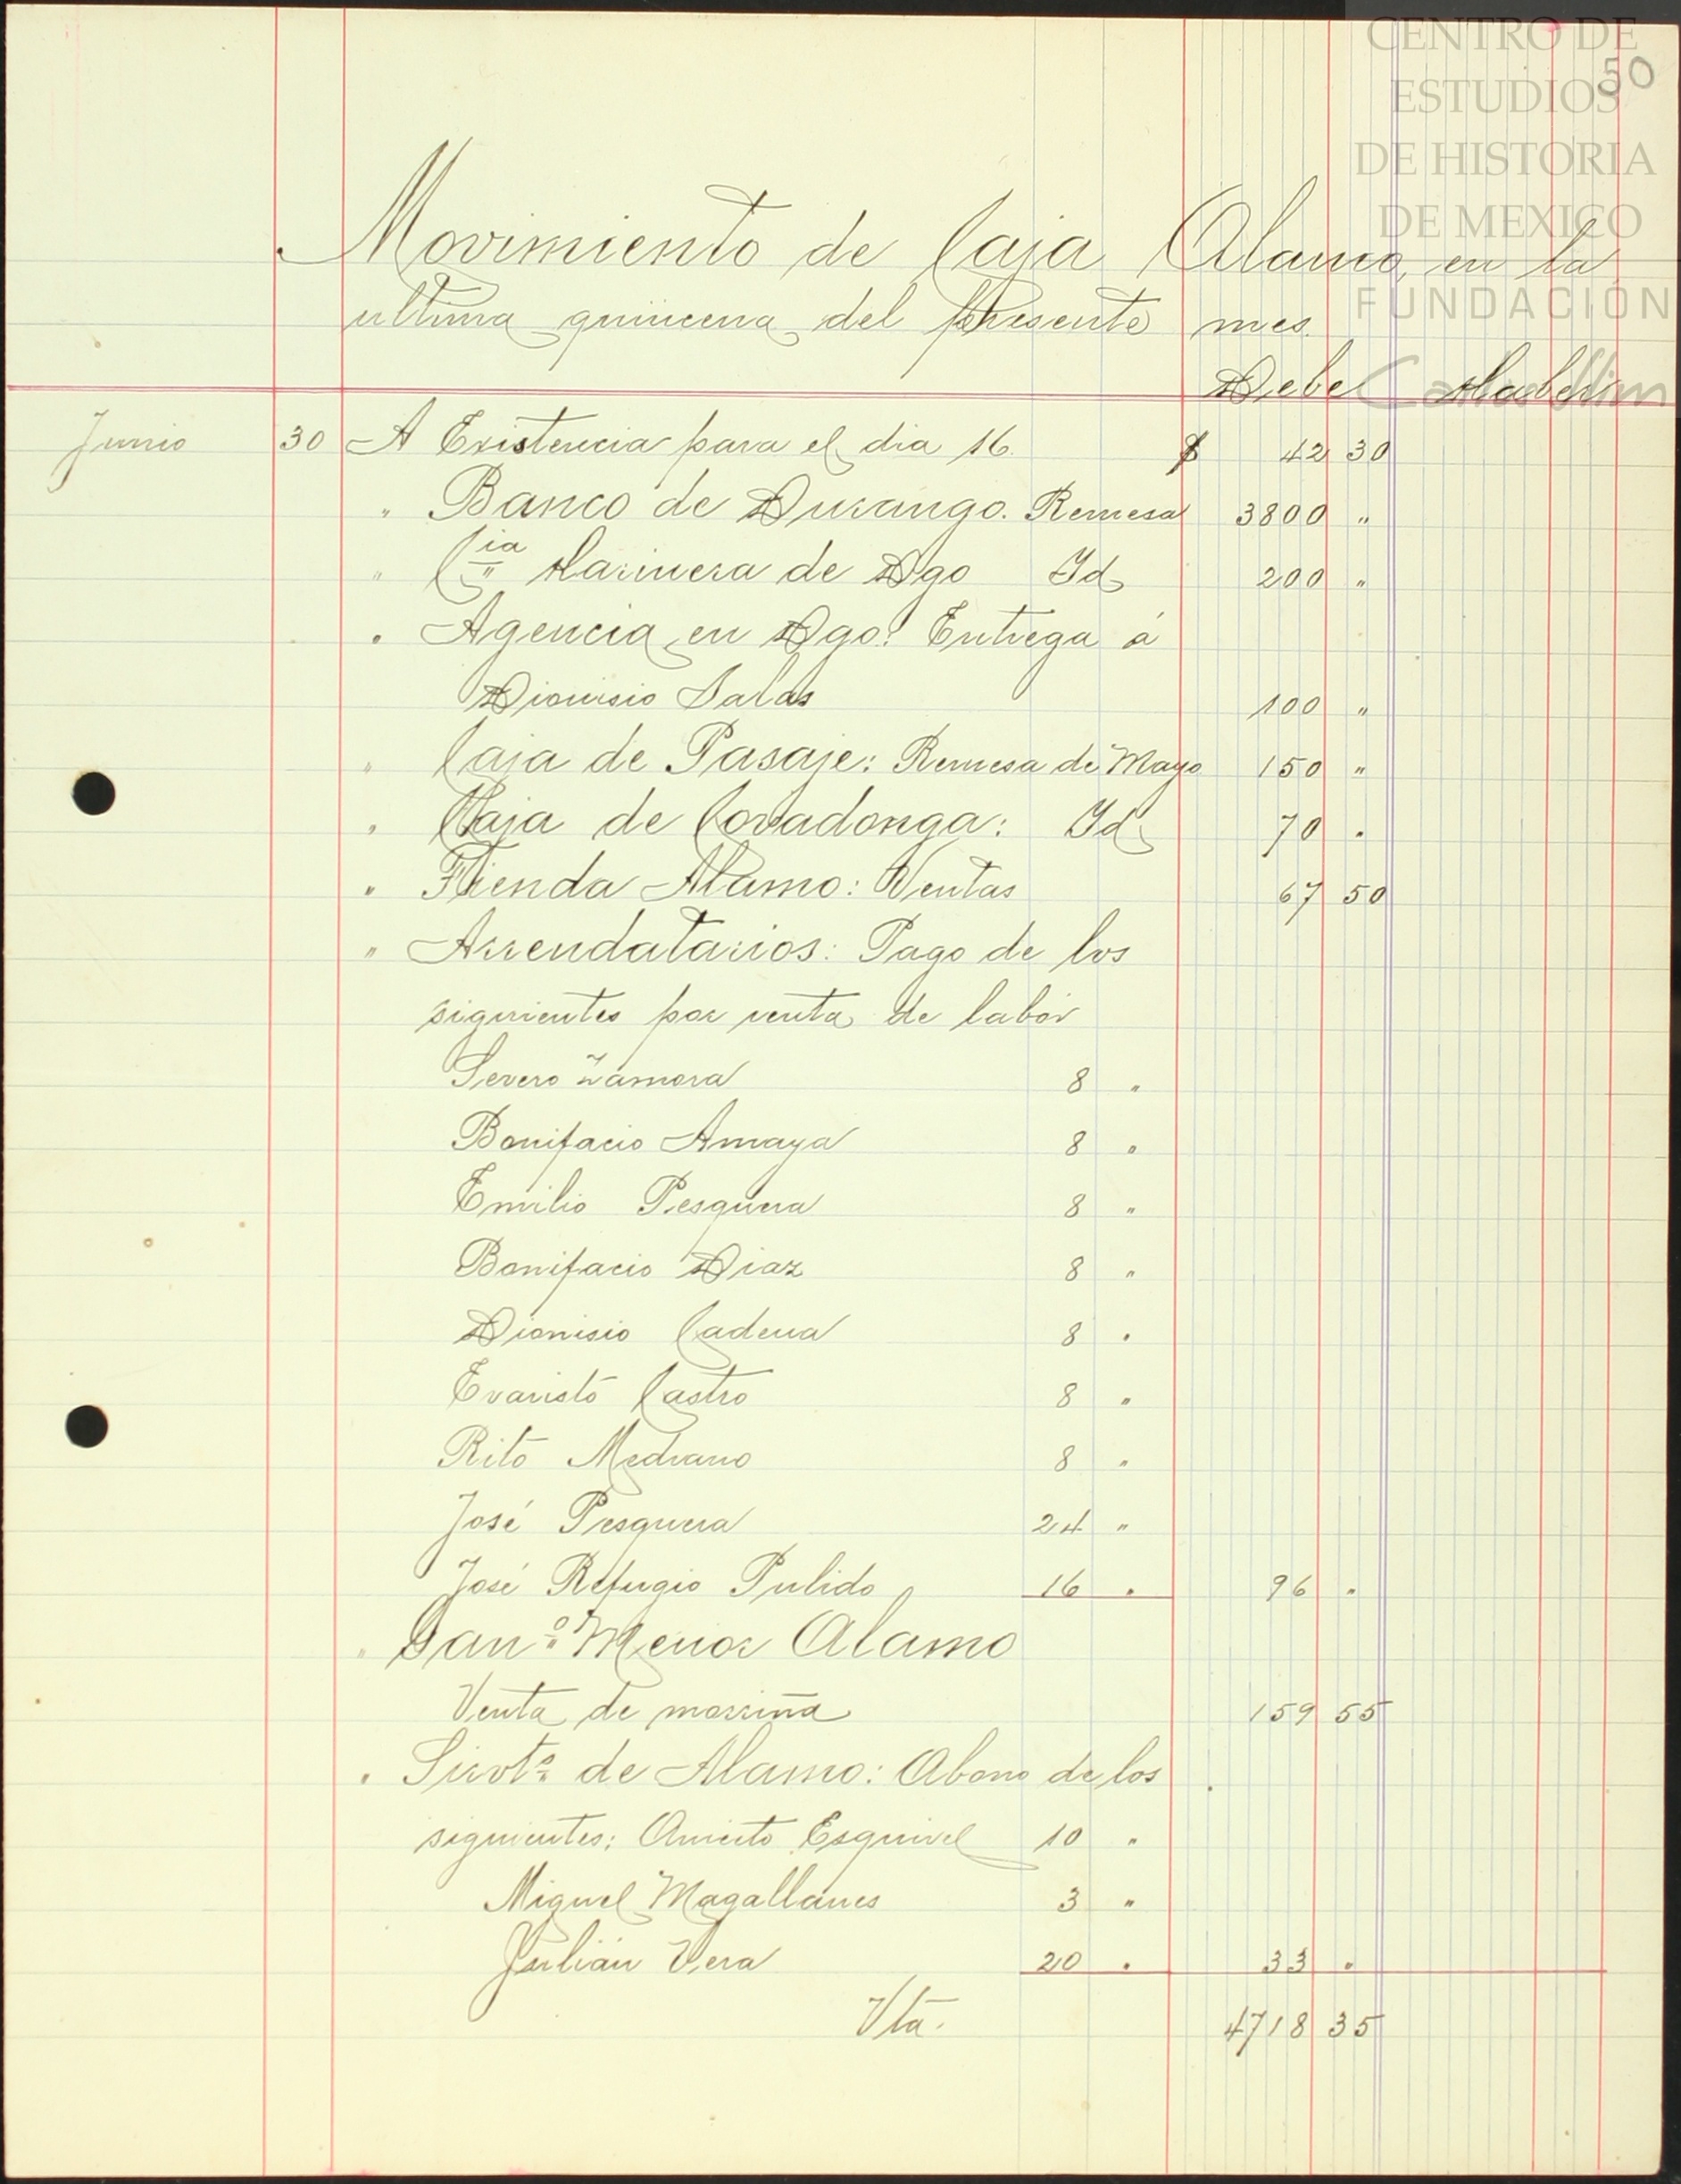 CENTRO DE
ESTUDIOS
DE HISTORIA
DE MEXICO
FUNDACIÓN
50
Movimiento de Caja Alamo, en la
ultima quincena del presente mes.
Debe Haber
Junio 30 A Existencia para el dia 16. $ 42 30
" Banco de Durango. Remesa 3800 "
" Cia Harinera de Dgo Id 200 "
" Agencia en Dgo: Entrega á
Dionisio Salas 100 "
" Caja de Pasaje: Remesa de Mayo 150 "
" Caja de Covadonga: Id 70 "
" Tienda Alamo: Ventas 67 50
" Arrendatarios: Pago de los
siguientes por renta de labor
Severo Zamora 8 "
Bonifacio Amaya 8 "
Emilio Pesquera 8 "
Bonifacio Diaz 8 "
Dionisio Cadena 8 "
Evaristo Castro 8 "
Rito Medrano 8 "
José Pesquera 24 "
José Refugio Pulido 16 " 96 "
" Ganº Menor Alamo
Venta de morriña 159 55
" Sirvtº de Alamo: Abono de los
siguientes: Aniceto Esquivel 10 "
Miguel Magallanes 3 "
Julián Vera 20 " 33 "
Vta. 4718 35